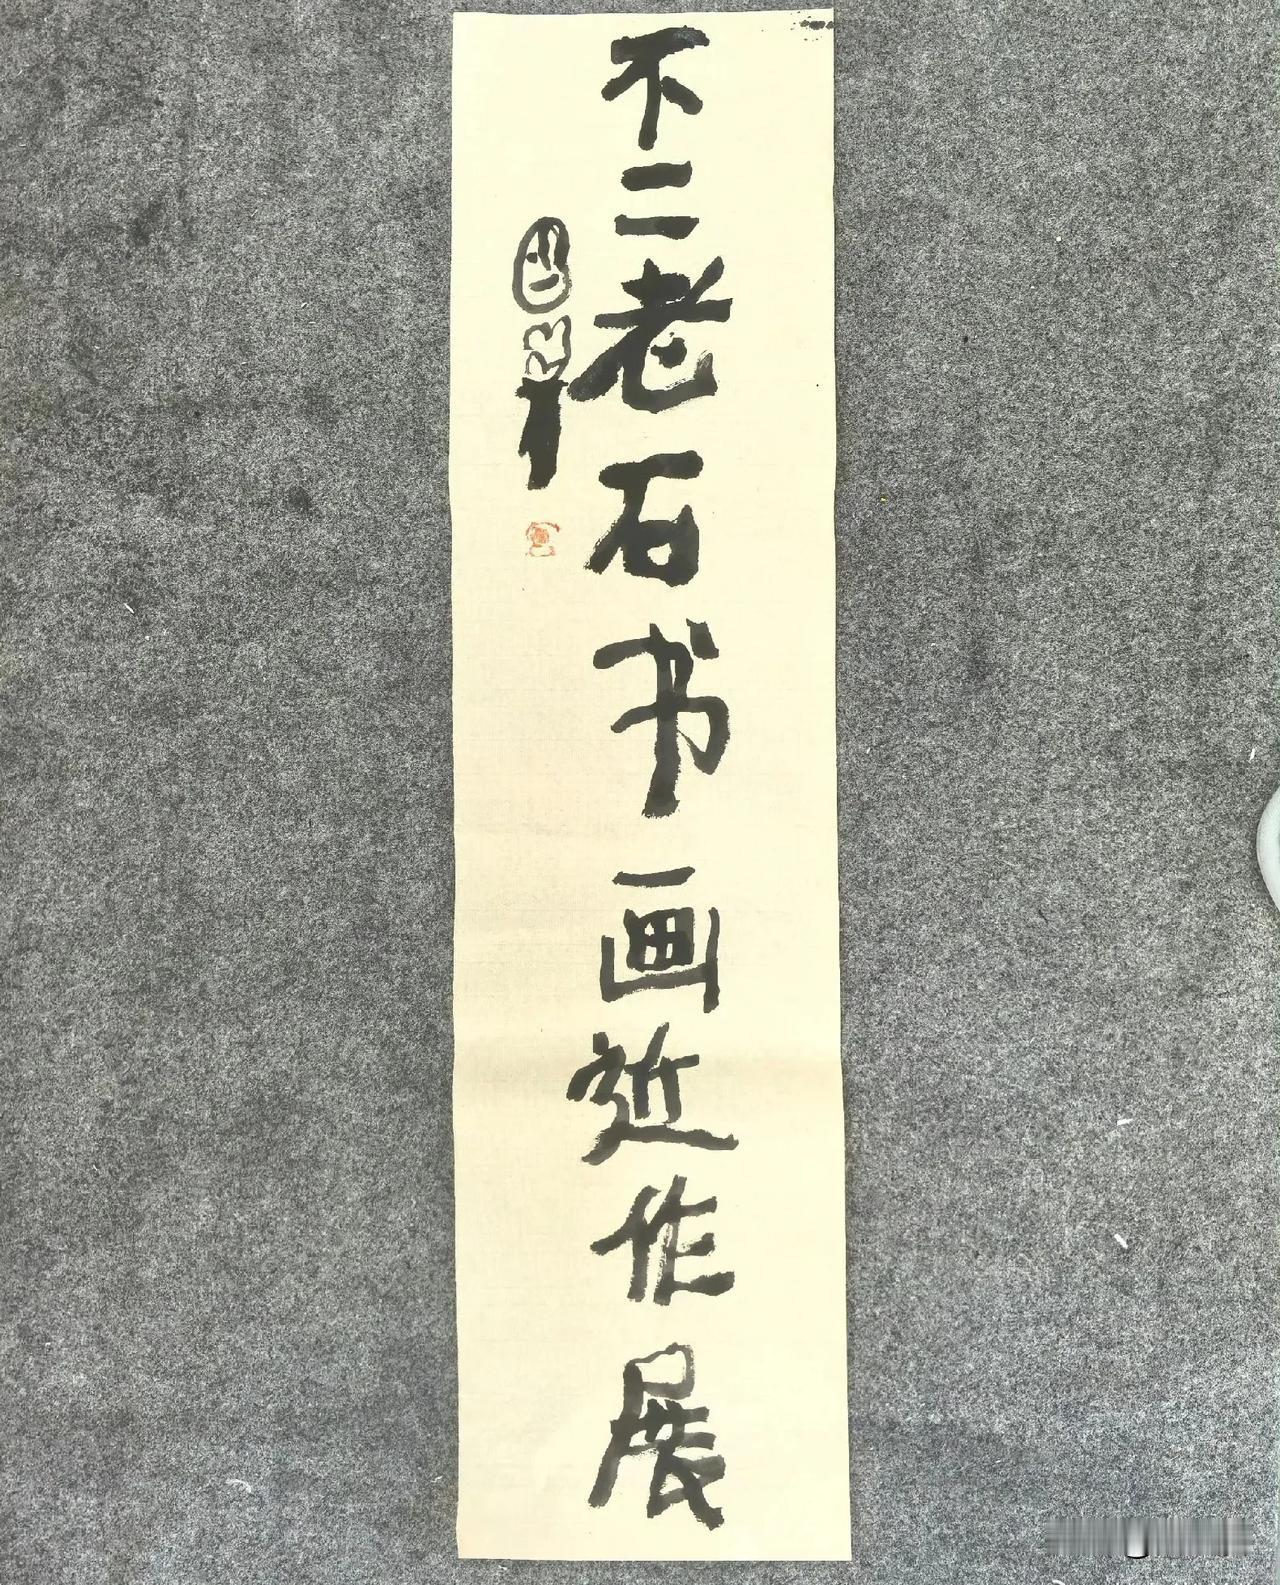 不二老石书画近作展